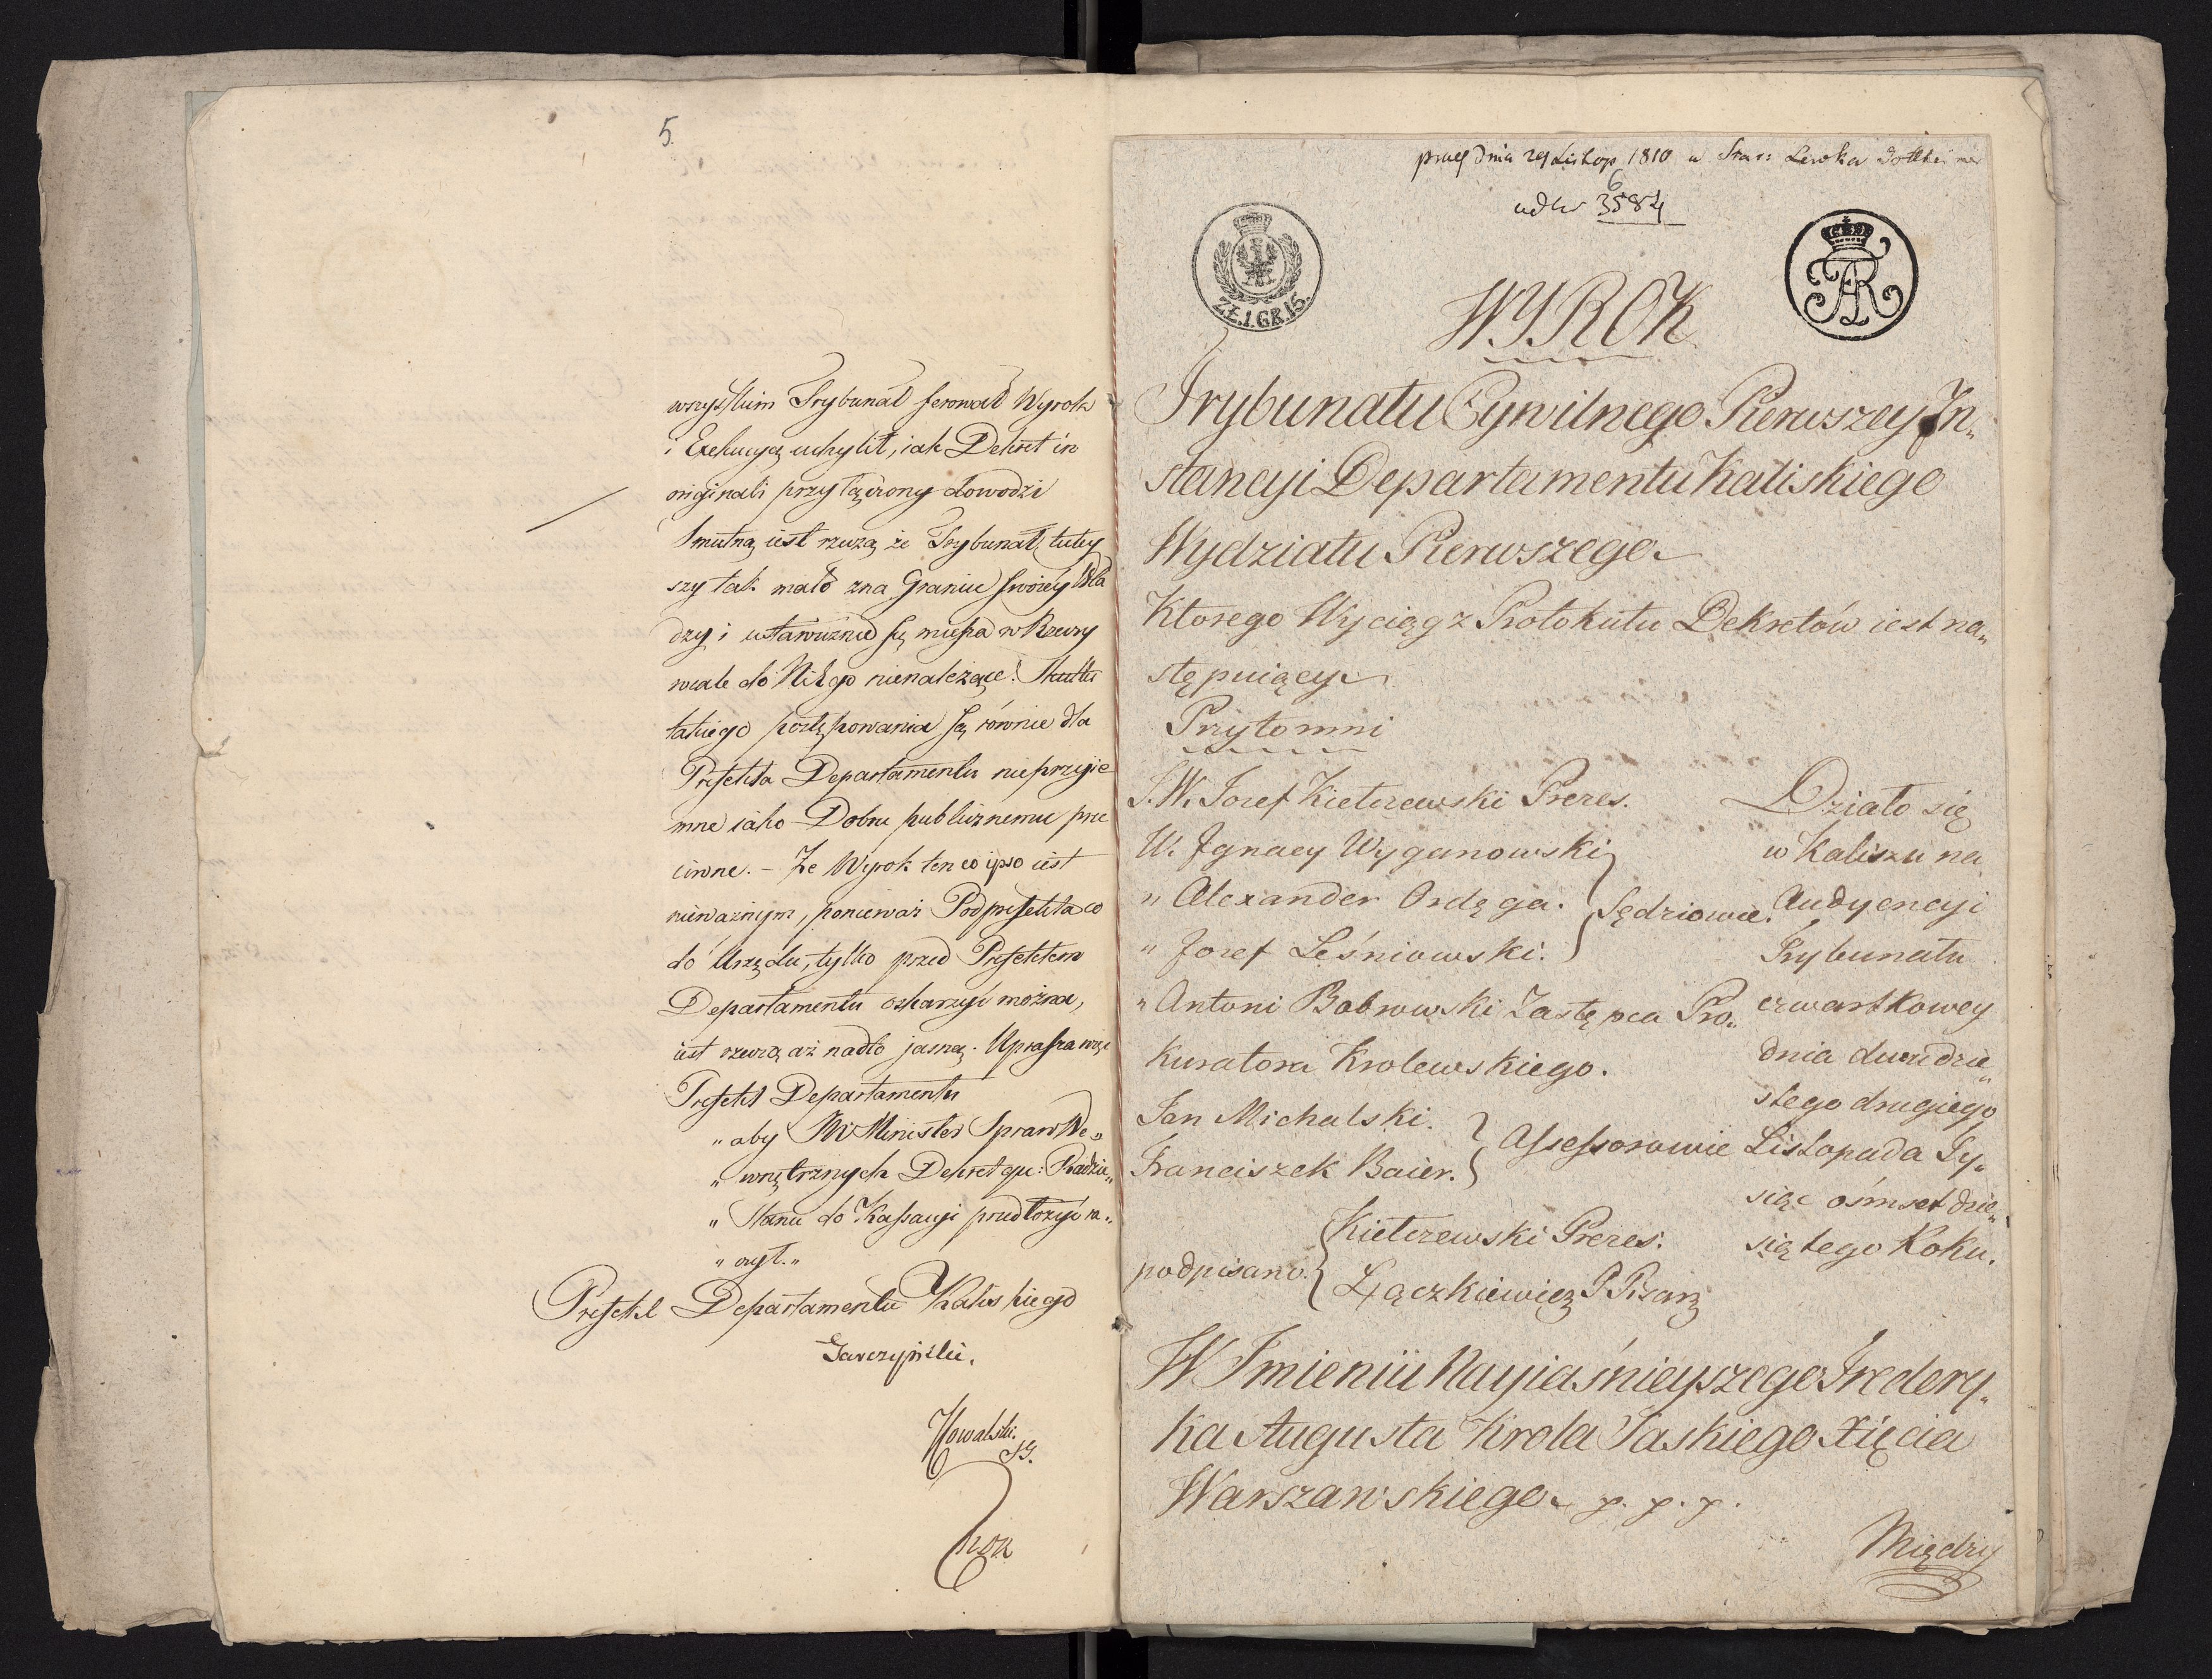 5.
wszystkim Trybunał ferował Wyrok
i Exekucyą uchylił, iak Dekret in
originali przyłączony dowodzi
Smutną iest rzeczą że Trybunał tutey
szy tak mało zna Granice swoiey Wła
dzy i ustawicznie się miesza w Rzeczy
wcale do Niego nienależące! Skutki
takiego postępowania są równie dla
Prefekta Departamentu nieprzyie
mne iako Dobru publicznemu prze
ciwne. – Że Wyrok ten eo ipso iest
nieważnym, ponieważ Podprefekta co
do Urzędu, tylko przed Prefektem
Departamentu oskarżyć można,
iest rzeczą aż nadto jasną. Uprasza więc
Prefekt Departamentu
„ aby JW Minister Spraw We„
„ wnętrznych Dekret qu: Radzie„
„ Stanu do Kassacyi przedłożyć ra„
„ czył. „
Prefekt Departamentu Kaliskiego
Garczyński.
Kowalski.
SG.
6
dnia 29 Listop 1810 u Lewka
3584
ZŁ.1.GR.15.
FAR
WYROK
Trybunału Cywilnego Pierwszey In„
stancyi Departamentu Kaliskiego
Wydziału Pierwszego
Ktorego Wyciąg z Protokułu Dekretów iest na„
stępuiący
Przytomni
J.W. Jozef Kiełczewski Prezes.
W. Ignacy Wyganowski
„ Alexander Ordęga. Sędziowie.
„ Jozef Leśniowski.
„ Antoni Bobrowski Zastępca Pro„
kuratora Krolewskiego.
Jan Michalski.
Franciszek Baier. Assessorowie
podpisano. Kiełczewski Prezes.
Łączkiewicz P Pisarz
Działo się
w Kaliszu na
Audyencyi
Trybunału
czwartkowey
dnia dwudzie„
stego drugiego
Listopada Ty„
siąc ośmset dzie„
siątego Roku.
W Imieniu Nayiaśnieyszego Fredery„
ka Augusta Krola Saskiego Xięcia
Warszawskiego p. p. p.
Między